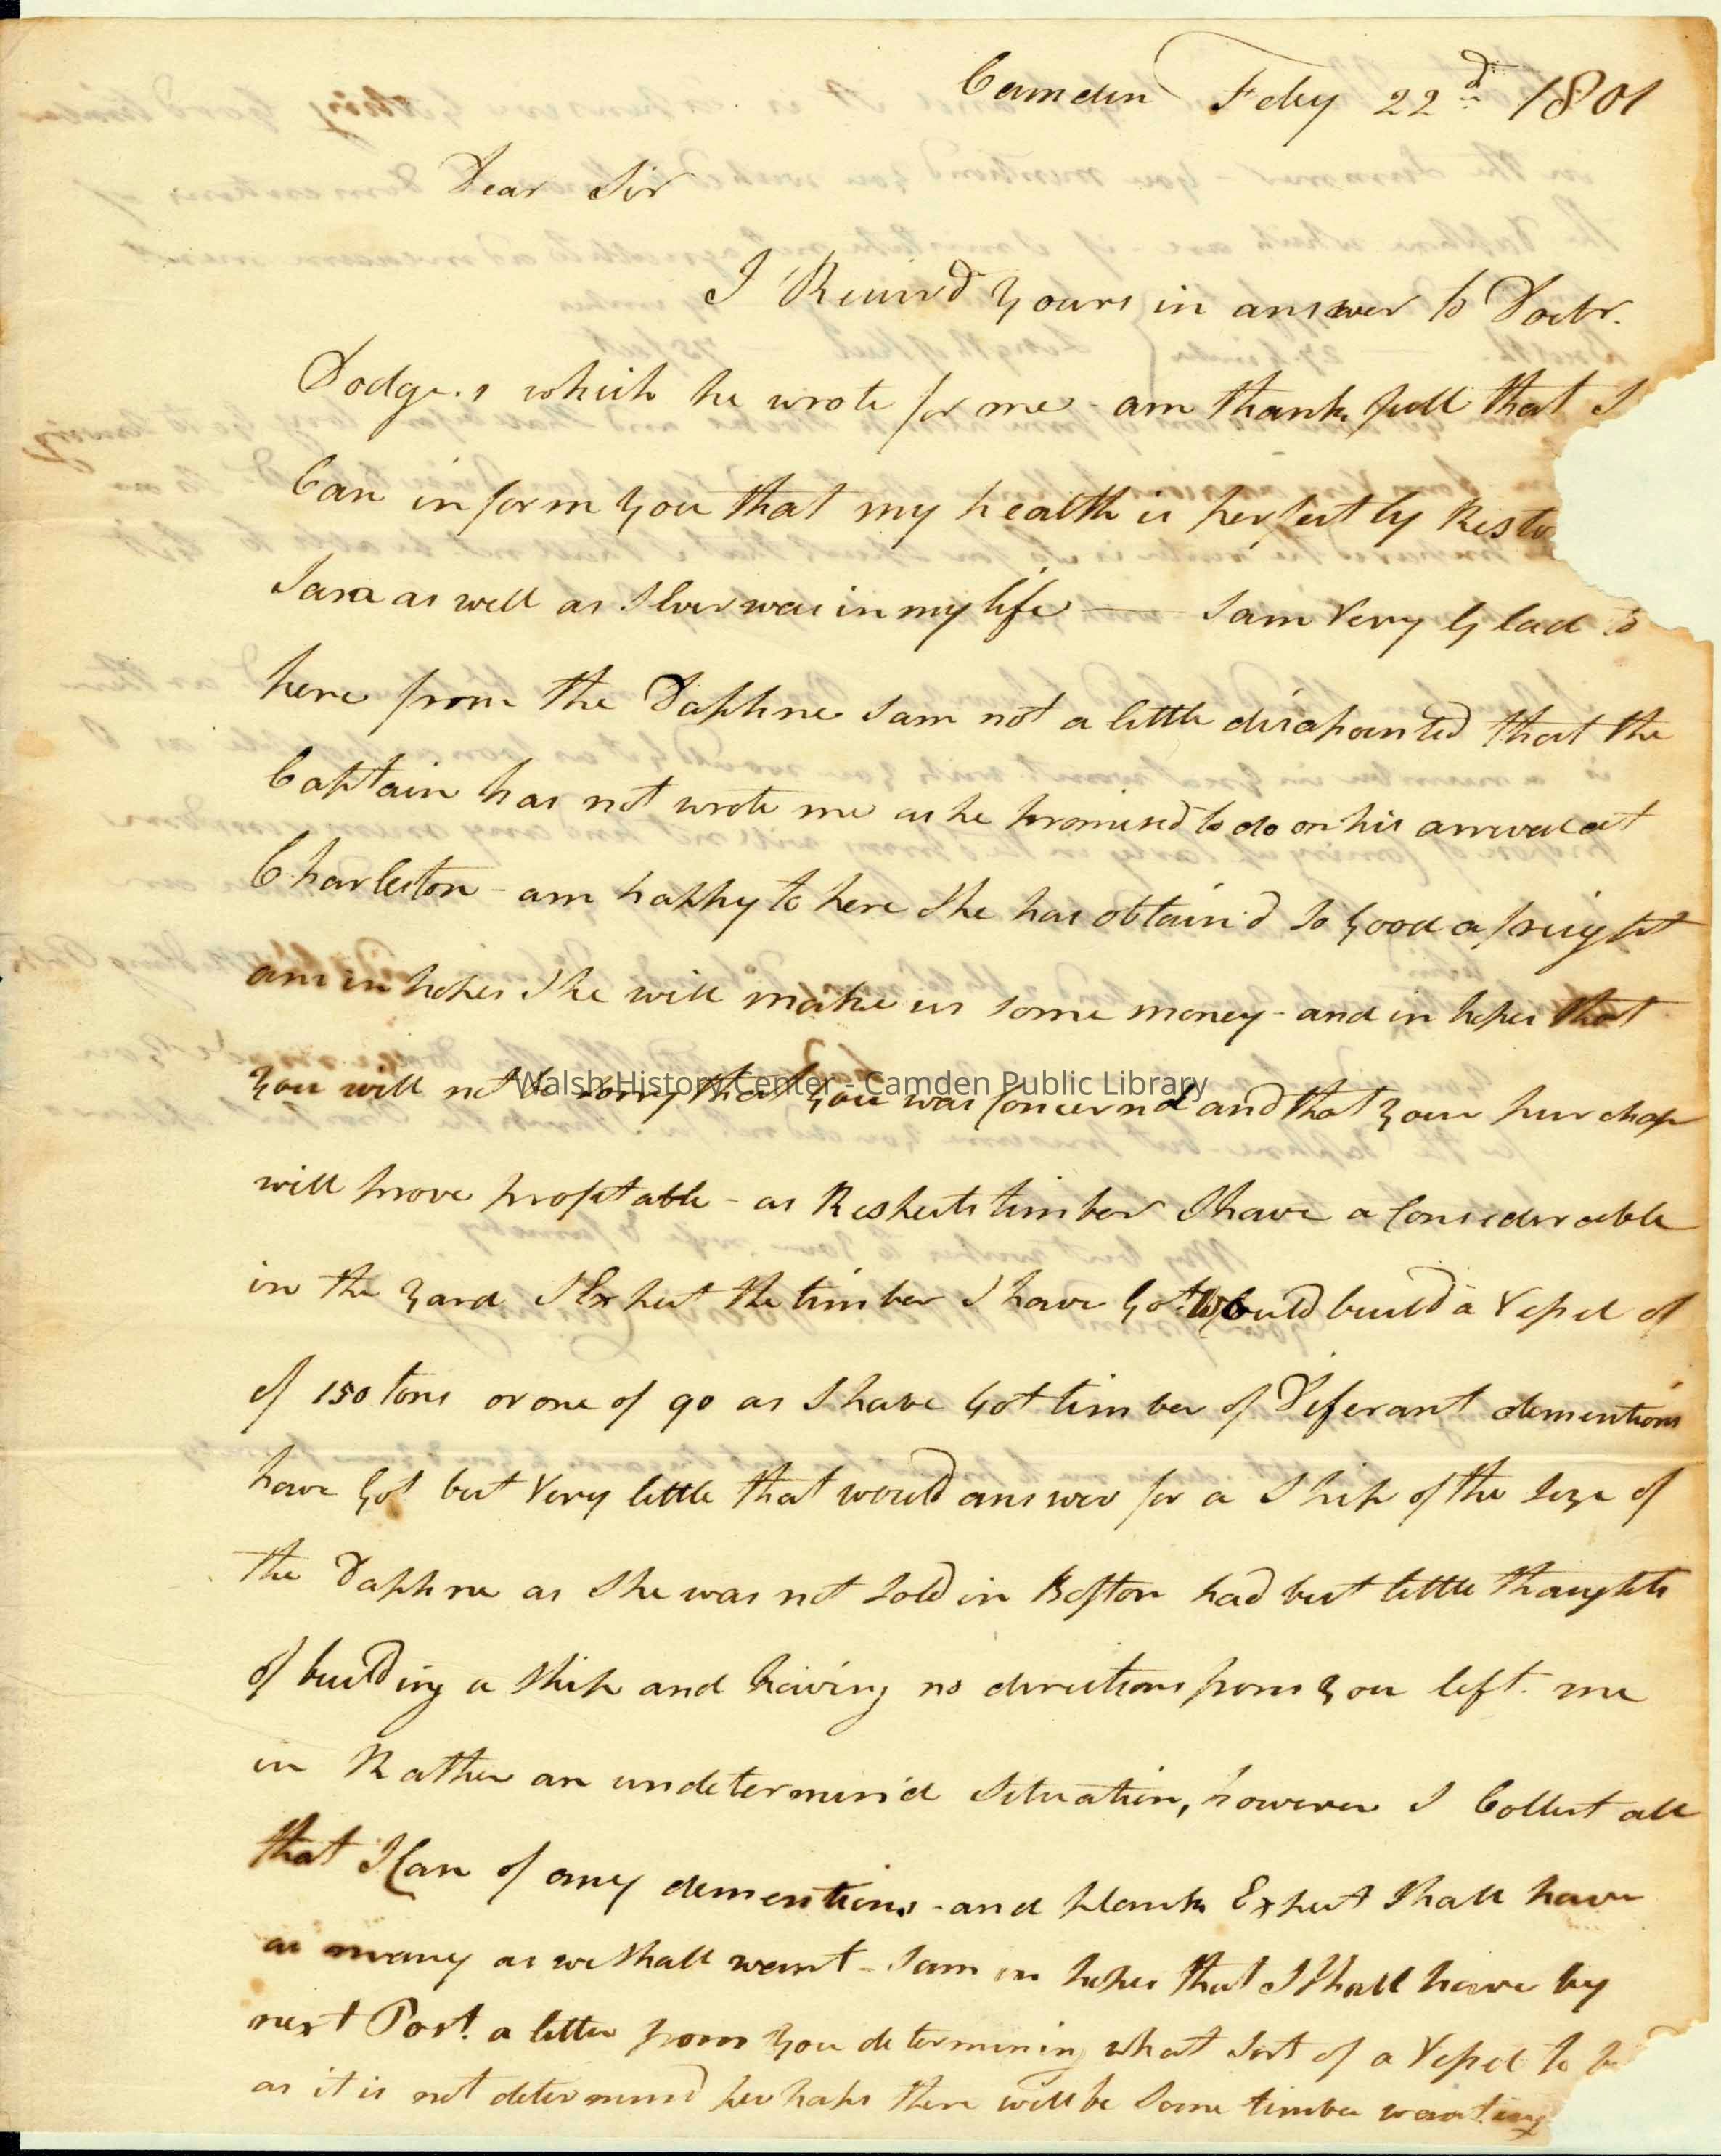 Camden Feby 22d 1801
Dear Sir
I Reciv'd yours in answer to Doctr.
Dodges which he wrote for me - am thankfull that I
Can inform you that my health is perfectly Resto
I am as well as I Ever was in my life — I am Very Glad to
here from the Daphne I am not a little disapointed that the
Captain has not wrote me as he promised to do on his arrival at
Charleston - am happy to here She has obtain'd So Good a freight
am in hopes She will make us some money - and in hopes that
you will not be sorry that you was Concern'd and that your purchase
will prove profitable - as Respects timber I have a Considerable
in the yard I Expect the timber I have Got Would build a Vessel of
of 150 tons or one of 90 as I have Got timber of Diferant dementions
have Got but Very little that would answer for a Ship of the Size of
the Daphne as She was not Sold in Boston had but little thoughts
of building a Ship and having no directions from you left me
in Rather an undetermin'd Situation, however I Collect all
that I Can of any dementions - and plank Expect Shall have
as many as we Shall want - I am in hopes that I Shall have by
next Post. a letter from you determining what Sort of a Vessel to b
as it is not determined perhaps there will be Some timber wanting
Walsh History Center - Camden Public Library